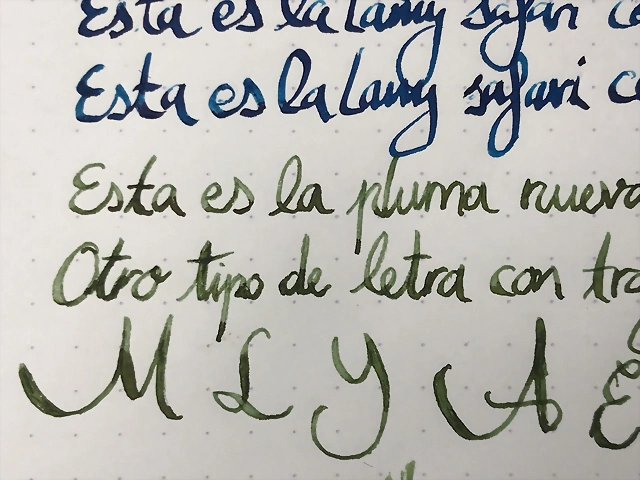 Esta es la Lamy safari
Esta es la Lamy safari
Esta es la pluma nueva
Otro tipo de letra con
M L Y A E